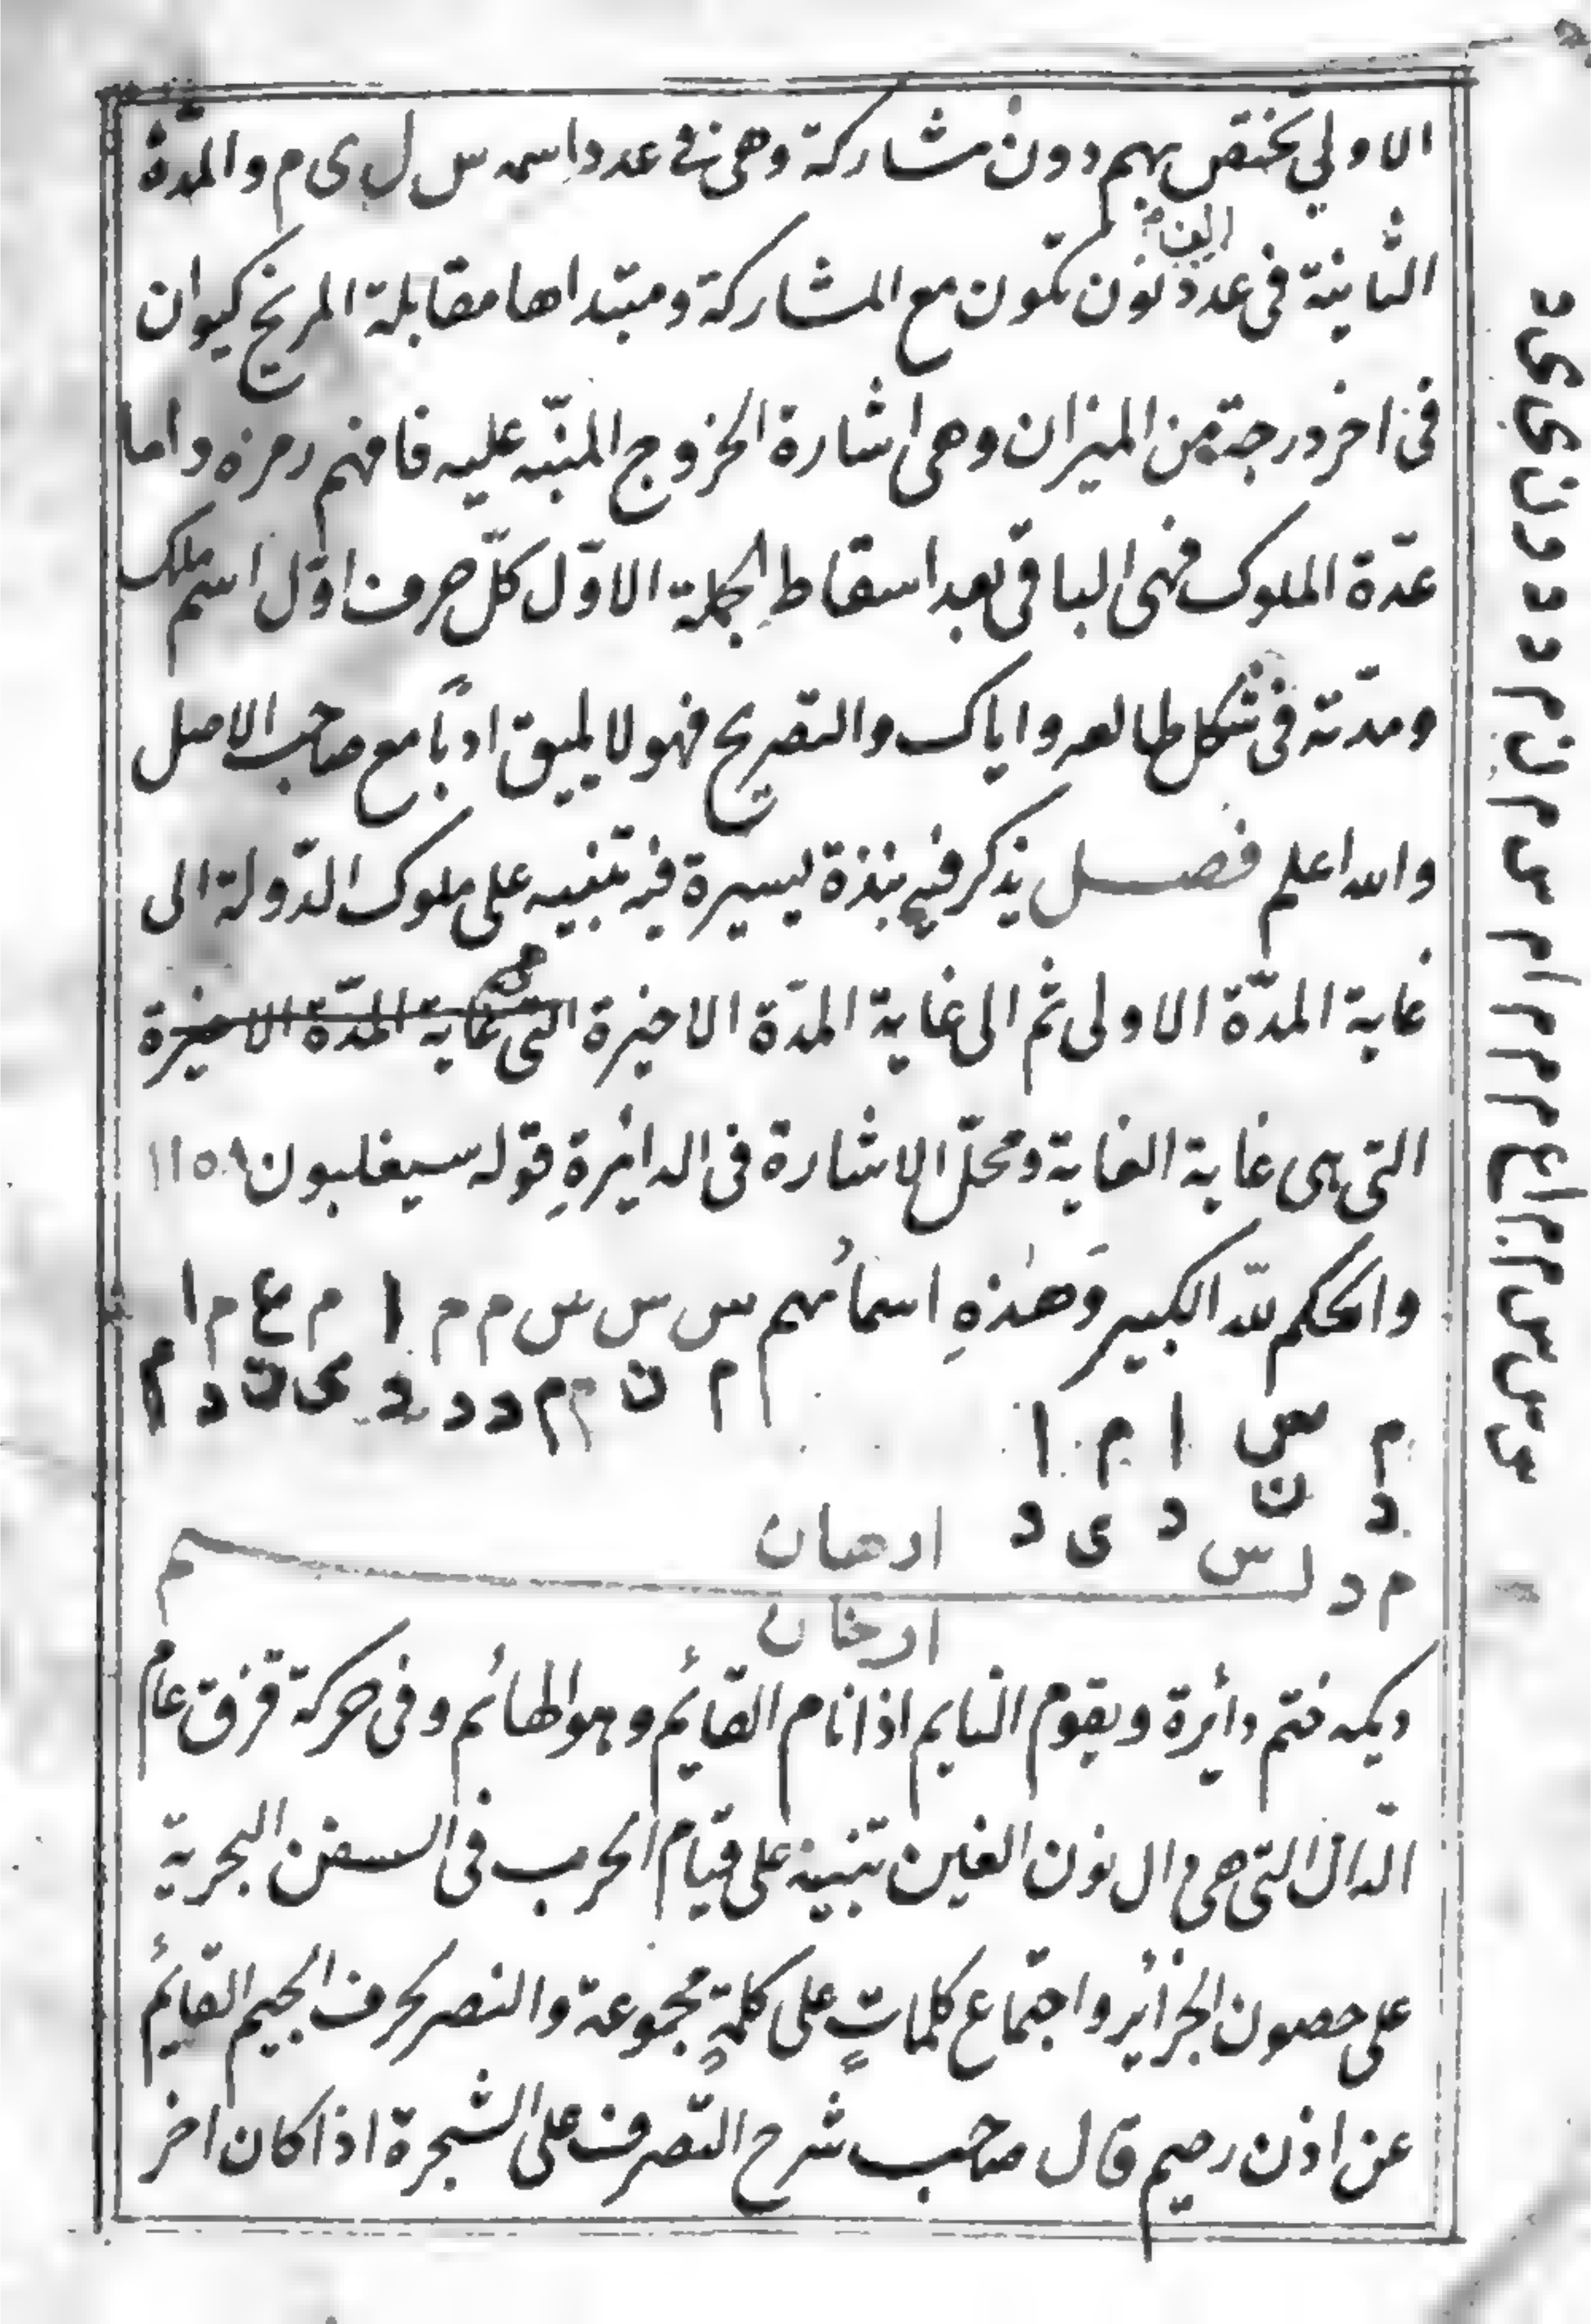 الاولي يختص بهم دون مشاركة وهى فى عدد اسمه س ل ى م والمدّة
الثانية فى عدد نون تكون مع المشاركة ومبتداها مقابلة المريخ كيوان
فى اخر درجة من الميزان وهى اشارة الخروج المنبّه عليه فافهم رمزه واما
عدّة الملوك فهى الباقى بعد اسقاط الجملة الاوّل كلّ حرف اوّل اسم ملك
ومدّته فى شكل طالعه واياك والتصريح فهو لا يليق ادبًا مع صاحب الاصل
والله اعلم فصل يذكر فيه نبذة يسيرة فيه تنبيه على ملوك الدّولة الى
غاية المدّة الاولى ثم الى غاية المدّة الاخيرة التى غاية المدّة الاخيرة
التى هى غاية الغاية ومحلّ الاشارة فى الدائرةِ قوله سيغلبون ١١٥٨
والحكم للّه الكبير وَهذهِ اسمائهم س س س م م ا م ع م ا
م ن م م د د د ى ن د م
م س ا م ا
د ن د ى د
ارهان
م د ل س م
ارخان
ختم دأيرة ويقوم النايم اذا نام القائم وهو الهائم وفى حركة قرفق عام
الدال التى هى دال نون الغين تنبيه على قيام الحرب فى السفن البحرية
على حصون الجزائر واجتماع كلماتٍ على كلمةٍ مجموعة والنصر بحرف الجيم القائم
عن اذن رحيم قال صاحب شرح التصرف على الشجرة اذا كان اخر